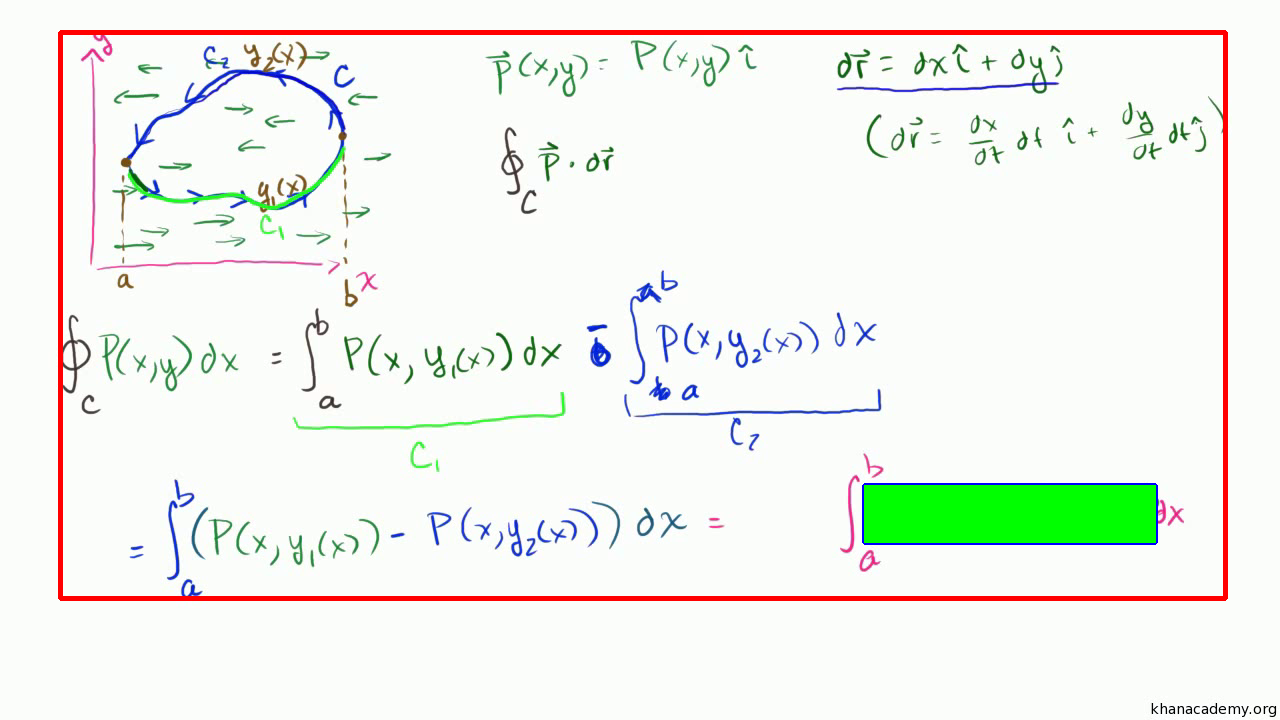 y
C₂ y₂(x)
C
y₁(x)
C₁
a b x
P⃗(x,y) = P(x,y) î
∮_C P⃗ · dr⃗
dr⃗ = dx î + dy ĵ
(dr⃗ = dx/dt dt î + dy/dt dt ĵ)
∮_C P(x,y) dx = ∫_a^b P(x, y₁(x)) dx - ∫_a^b P(x, y₂(x)) dx
C₁ C₂
= ∫_a^b (P(x, y₁(x)) - P(x, y₂(x))) dx = ∫_a^b dx
khanacademy.org